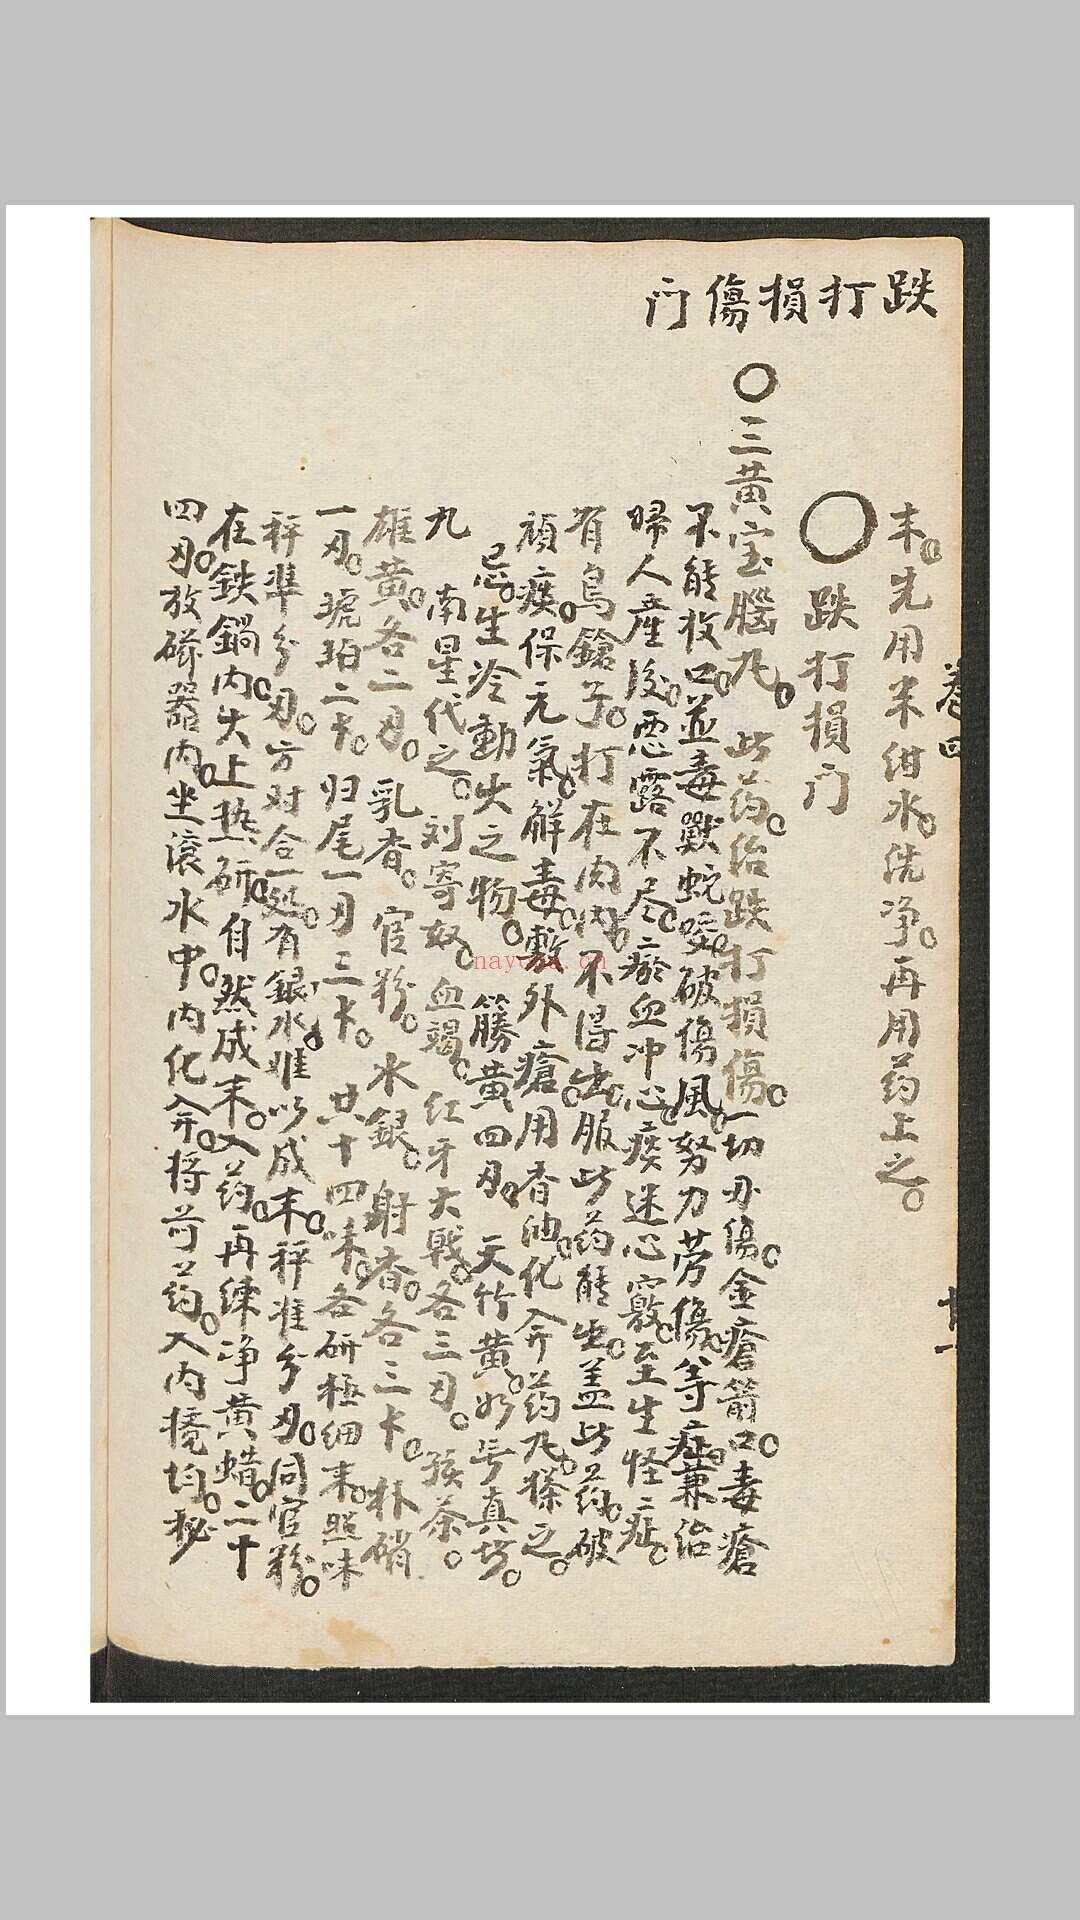 跌打損傷门
末。先用米泔水。洗净。再用药上之。
〇跌打損门
〇三黄宝腦丸。此药。治跌打損傷。一切刃傷。金瘡箭口。毒瘡
不能收口。並毒獸蛇咬。破傷風。努力劳傷。等症。兼治
婦人產後。悪露不尽。瘀血冲心。痰迷心竅。至生怪症。
有鳥鎗子。打在肉内。不得出。服此药能出。盖此药。破
頑痰。保元氣。解毒。敷外瘡。用香油。化開药丸。搽之。
忌。生冷動火之物。 籐黄四刄。 天竹黄。如无真者。
九 南星代之。刘寄奴。血竭。红牙大戟。各三刄。孩茶。
雄黄。各二刄。乳香。官粉。水銀。射香。各三卡。朴硝
一刄。琥珀二卡。归尾一刄三卡。 共十四味。各研極细末。照味
秤準分刄。方对合一処。有銀水。难以成末。秤准分刄。同官粉。
在鉄鍋。内火上热研。自然成末。入药。再煉净黄蜡。二十
四刄。放磁器内。坐滚水中。内化開。将前药。入内搅均。秘
卷四
十一
nayona.cn